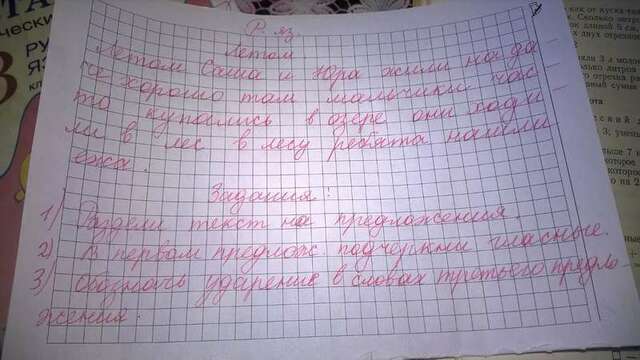 Р. яз.
Летом
Летом Саша и Юра жили на да
че хорошо там мальчики час
то купались в озере они ходи
ли в лес в лесу ребята нашли
ежа.
Задания:
1) Раздели текст на предложения.
2) В первом предлож. подчеркни гласные.
3) Обозначь ударение в словах третьего предло-
жения.